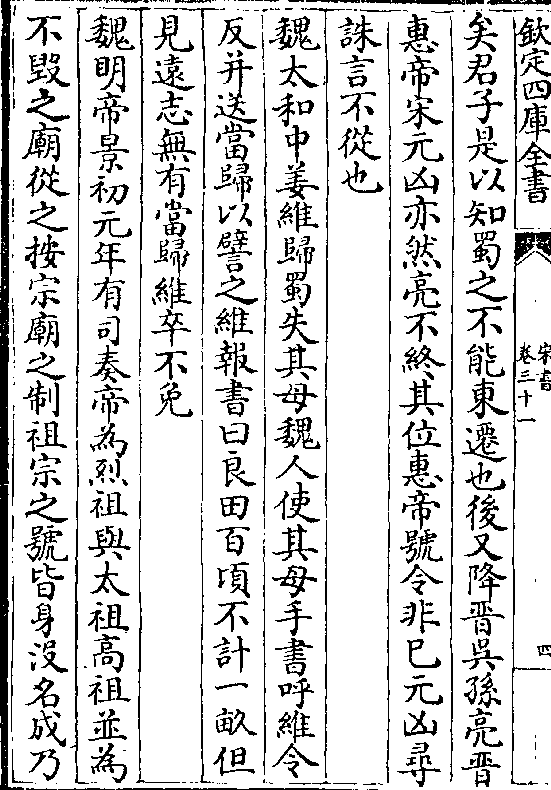 欽定四庫全書
宋書
卷三十一
四
矣君子是以知蜀之不能東遷也後又降晉吳孫亮晉
惠帝宋元凶亦然亮不終其位惠帝號令非已元凶尋
誅言不從也
魏太和中姜維歸蜀失其母魏人使其母手書呼維令
反并送當歸以譬之維報書曰良田百頃不計一畝但
見遠志無有當歸維卒不免
魏明帝景初元年有司奏帝為烈祖與太祖高祖並為
不毀之廟從之按宗廟之制祖宗之號皆身沒名成乃